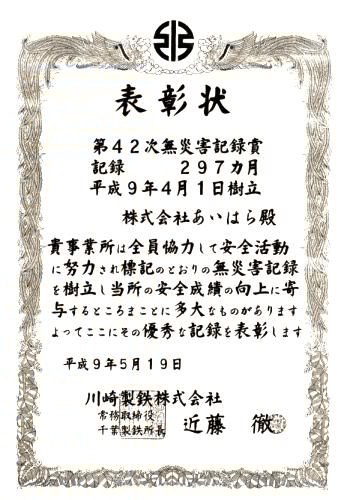 表彰状
第42次無災害記録賞
記録　297カ月
平成9年4月1日樹立
株式会社あいはら殿
貴事業所は全員協力して安全活動
に努力され標記のとおりの無災害記録
を樹立し当所の安全成績の向上に寄
与するところまことに多大なものがあります
よってここにその優秀な記録を表彰します
平成9年5月19日
川崎製鉄株式会社
常務取締役
千葉製鉄所長
近藤　徹